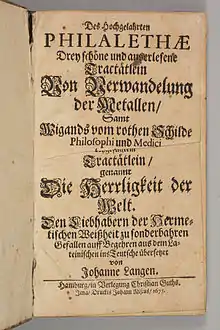 Des Hochgelahrten
PHILALETHÆ
Drey schöne und auserlesene
Tractätlein
Von Verwandelung
der Metallen/
Samt
Wigands vom rothen Schilde
Philosophi und Medici
Tractätlein/
genannt
Die Herrligkeit der
Welt.
Den Liebhabern der Herme-
tischen Weißheit zu sonderbahren
Gefallen auff Begehren aus dem La-
teinischen ins Teutsche übersetzet
von
Johanne Langen.
Hamburg/ in Verlegung Christian Guths.
Druckts Johann